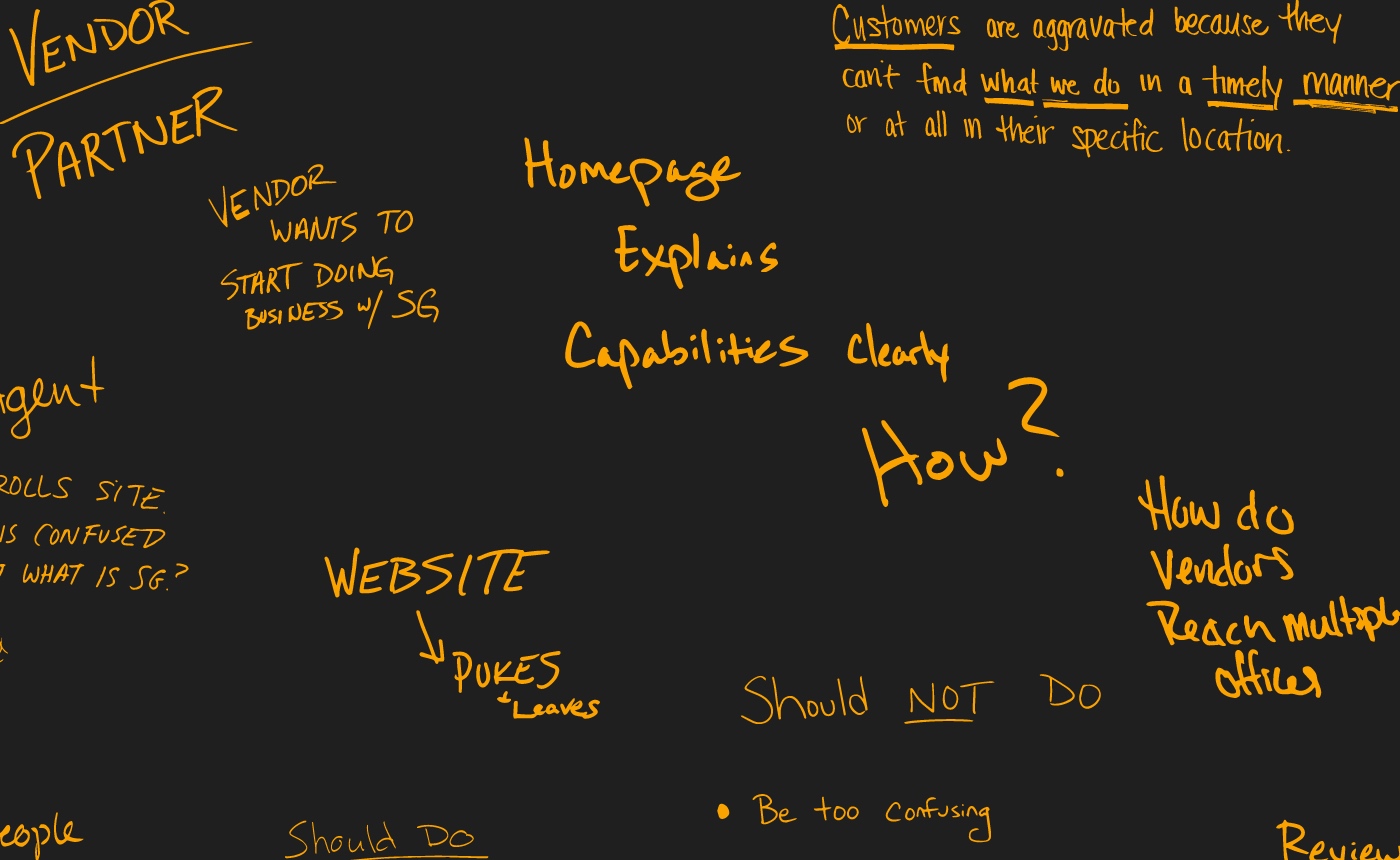 VENDOR
PARTNER
VENDOR
WANTS TO
START DOING
BUSINESS w/ SG
Customers are aggravated because they
can't find what we do in a timely manner
or at all in their specific location.
Homepage
Explains
Capabilities clearly
How?
gent
ROLLS SITE.
IS CONFUSED
WHAT IS SG?
WEBSITE
PUKES
+ Leaves
How do
Vendors
Reach multiple
offices
Should NOT DO
• Be too confusing
eople
Should DO
Review